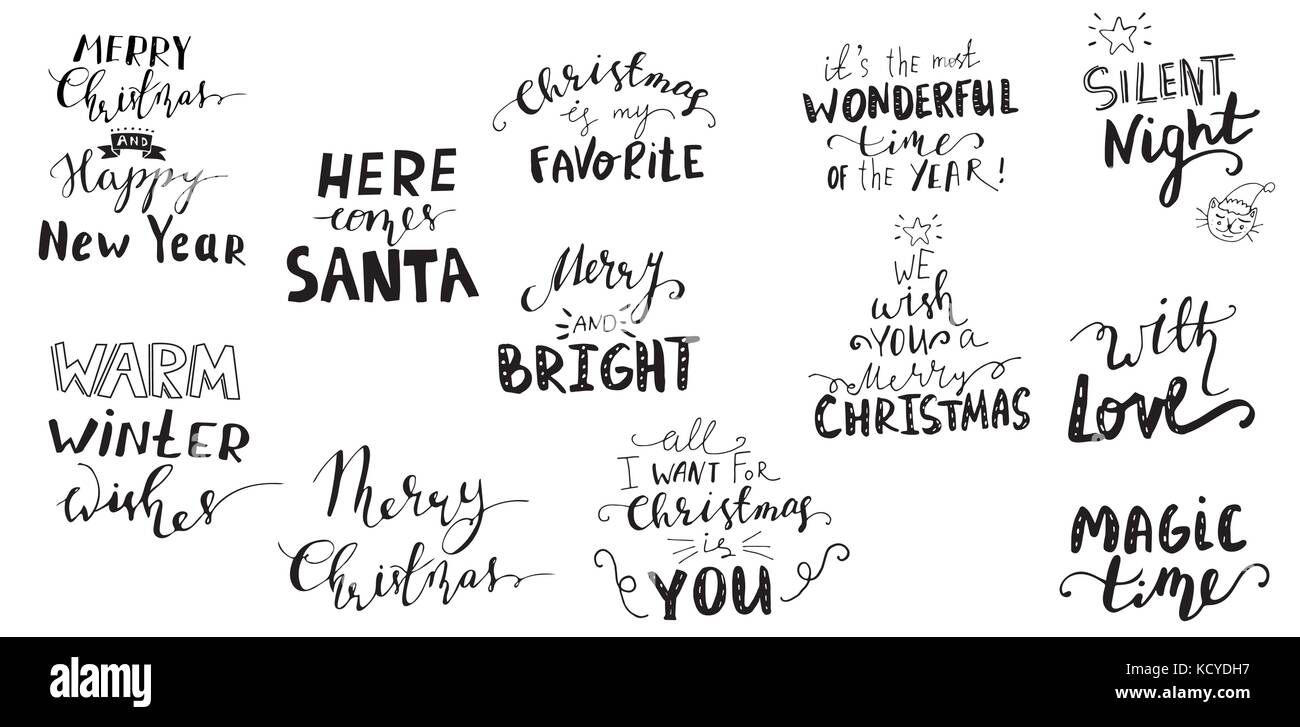 MERRY
Christmas
AND
Happy
New Year
HERE
comes
SANTA
Christmas
is my
FAVORITE
it's the most
WONDERFUL
time
OF the YEAR!
SILENT
Night
Merry
AND
BRIGHT
WE
wish
YOU a
Merry
CHRISTMAS
With
Love
WARM
WINTER
Wishes
Merry
Christmas
all
I WANT FOR
Christmas
is
YOU
MAGIC
time
a alamy stock photo
KCYDH7
www.alamy.com